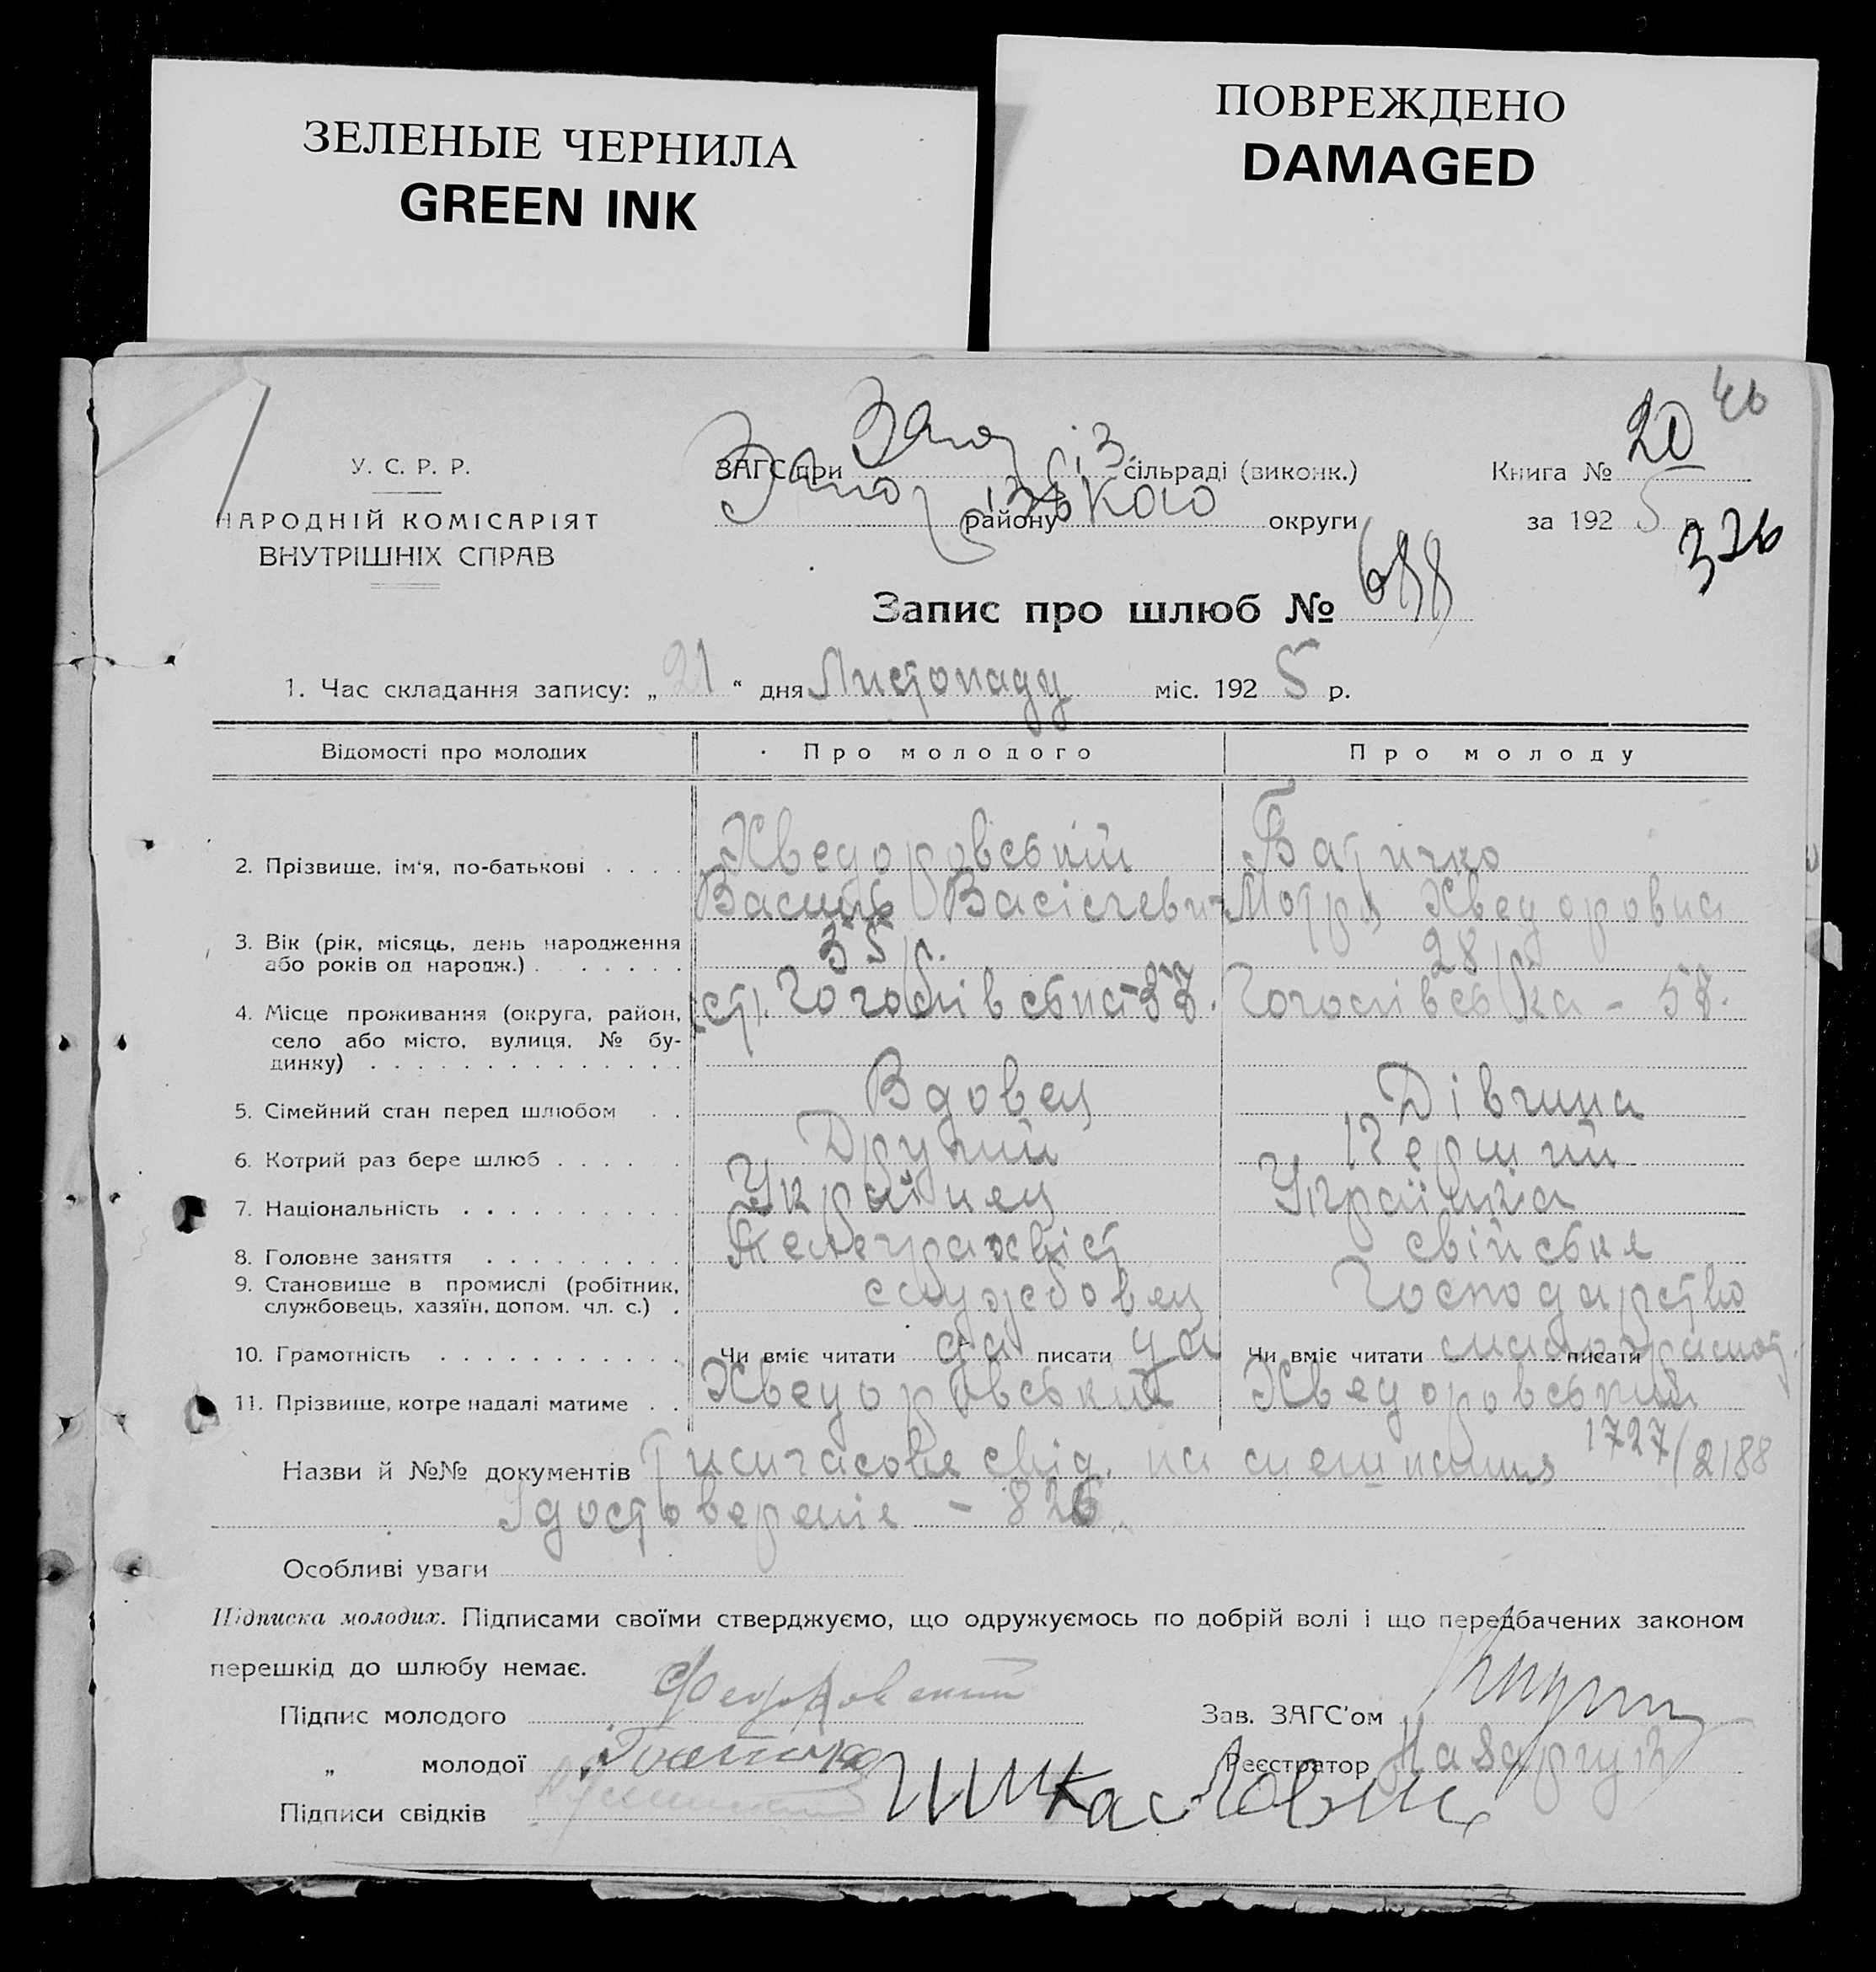 ЗЕЛЕНЫЕ ЧЕРНИЛА
GREEN INK
ПОВРЕЖДЕНО
DAMAGED
20 46
У. С. Р. Р.
ЗАГС при сільраді (виконк.)
Книга №
НАРОДНІЙ КОМІСАРІЯТ
району округи
за 192 5 р.
ВНУТРІШНІХ СПРАВ
326
Запис про шлюб № 688
1. Час складання запису: „ 21 “ дня Листопаду міс. 192 5 р.
Відомості про молодих Про молодого Про молоду
2. Прізвище, ім'я, по-батькові . . . . Хведоровський
Василь Мотря Хведоровна
3. Вік (рік, місяць, день народження 35 р. 28 р.
або років од народж.) . . . . . . .
4. Місце проживання (округа, район, Гоголівська - 57.
село або місто, вулиця, № бу-
динку) . . . . . . . . . . . . . .
5. Сімейний стан перед шлюбом . . Вдовец Дівчина
6. Котрий раз бере шлюб . . . . . . Другий Перший
7. Національність . . . . . . . . . . Українец Українка
8. Головне заняття . . . . . . . . . Телеграхвіст свійське
9. Становище в промислі (робітник, службовец Господарство
службовець, хазяїн, допом. чл. с.) .
10. Грамотність . . . . . . . . . . . Чи вміє читати да писати да Чи вміє читати писати
11. Прізвище, котре надалі матиме . . Хведоровський Хведоровський
Назви й №№ документів Тимчасове свід. на 1727/2188
Удостоверенія - 826.
Особливі уваги
Підписка молодих. Підписами своїми стверджуємо, що одружуємось по добрій волі і що передбачених законом
перешкід до шлюбу немає.
Підпис молодого Федоровский Зав. ЗАГС'ом
„ молодої Реєстратор
Підписи свідків